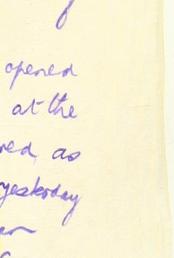 opened
at the
red as
yesterday